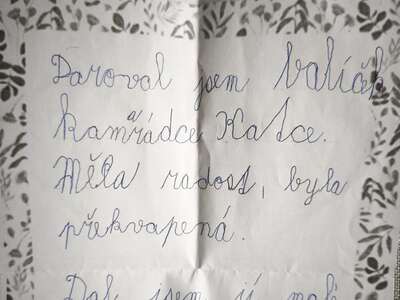 Daroval jsem balíček
kamarádce Katce.
Měla radost, byla
překvapená.
Dal jsem jí